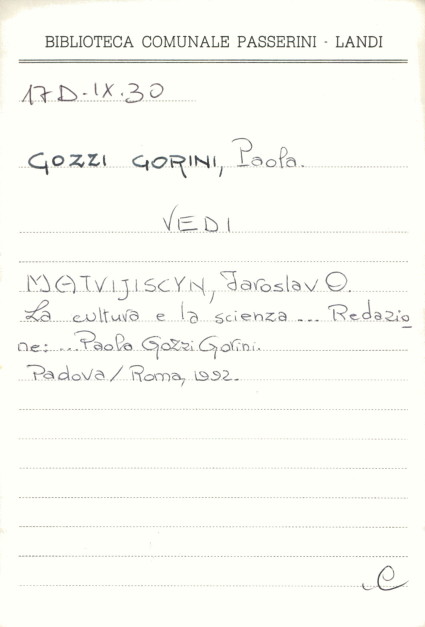 BIBLIOTECA COMUNALE PASSERINI - LANDI
17D.IX.30
GOZZI GORINI, Paola.
VEDI
MATVIJISCYN, Jaroslav O.
La cultura e la scienza ... Redazio
ne: ... Paola Gozzi Gorini.
Padova / Roma, 1992.
C